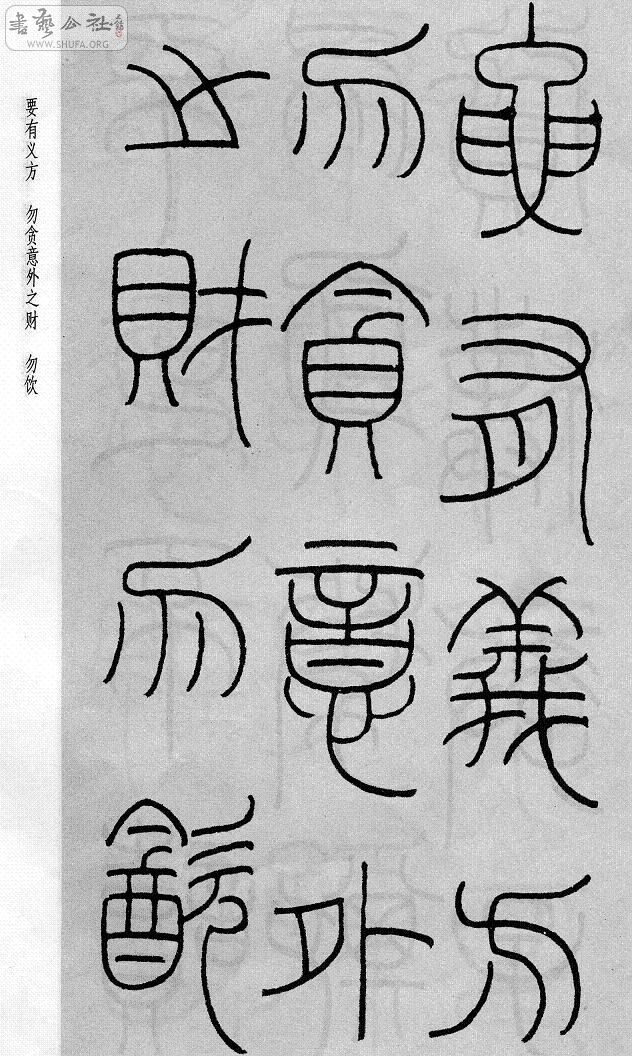 書藝公社
WWW.SHUFA.ORG
要有義方
勿貪意外
之財勿㱃
要有义方 勿贪意外之财 勿饮